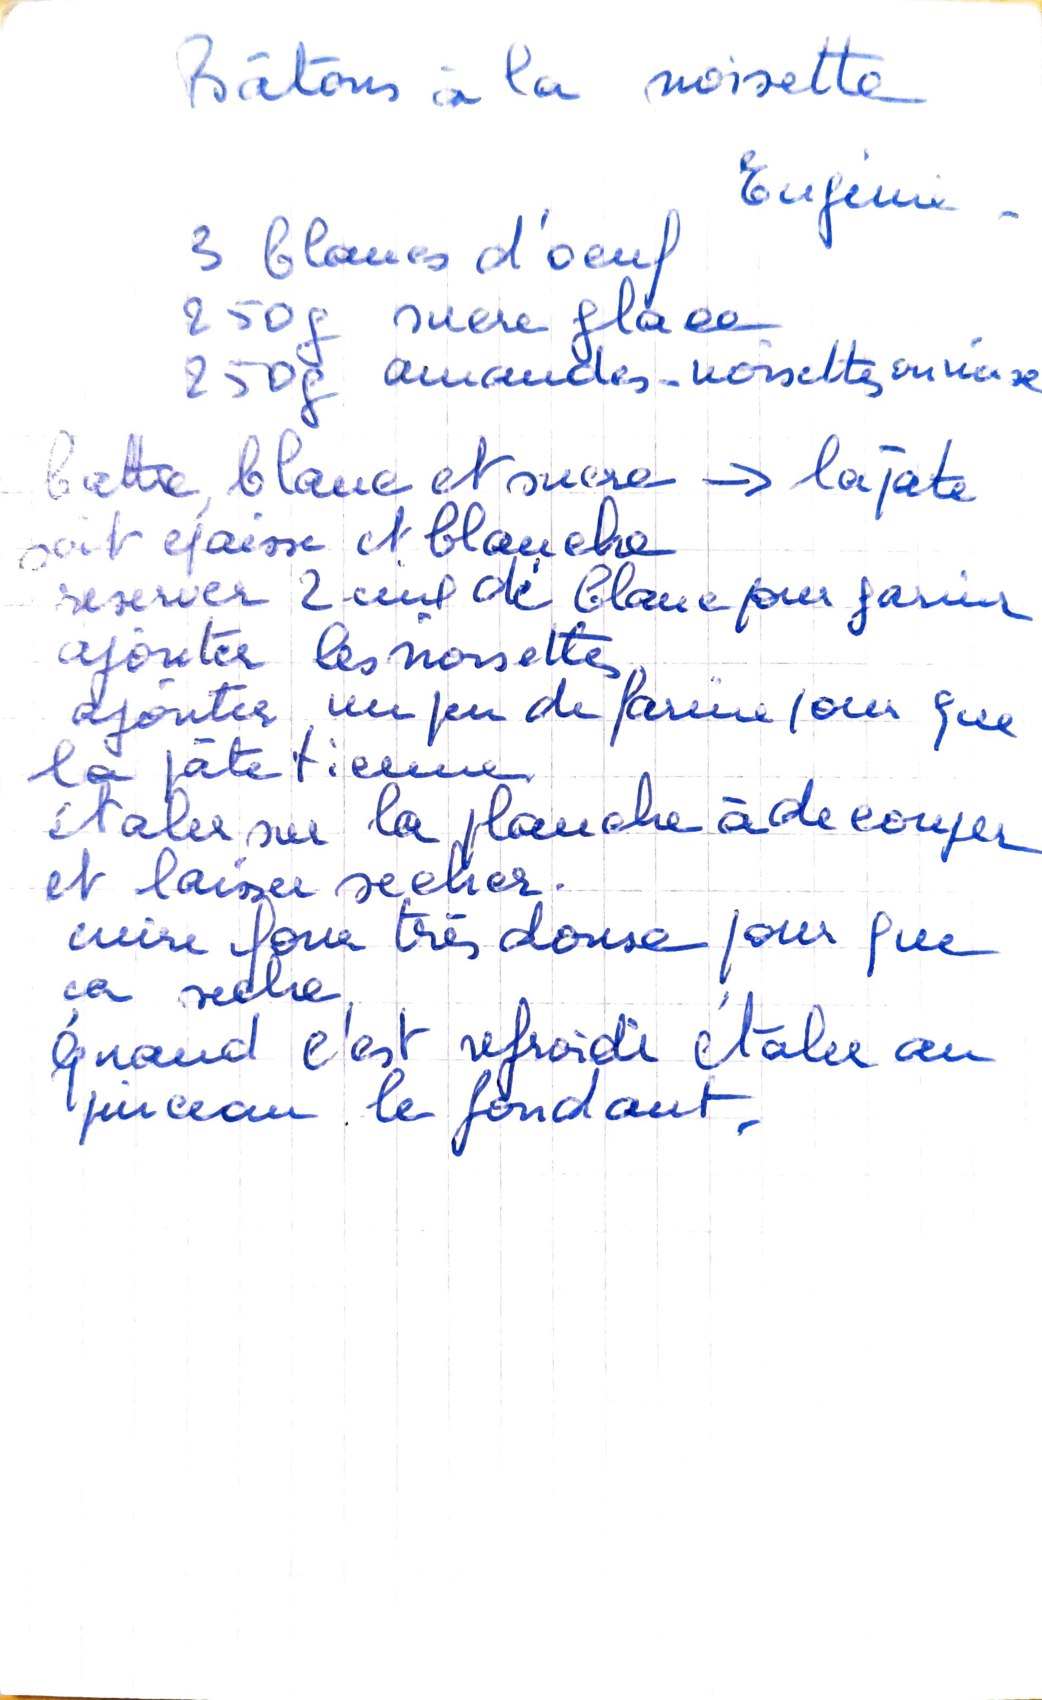 Bâtons à la noisette
Eugénie -
3 blancs d'oeuf
250g sucre glace
250g amandes - noisettes ou
batte, blanc et sucre → la pate
soit épaisse et blanche
reserver 2 cuil de blanc pour garnir
ajouter les noisettes
ajouter un peu de farine pour que
la pâte tienne
étaler sur la planche à decouper
et laisser secher.
cuire four très douse pour que
ca seche
Quand c'est refroidi étaler au
pinceau le fondant.